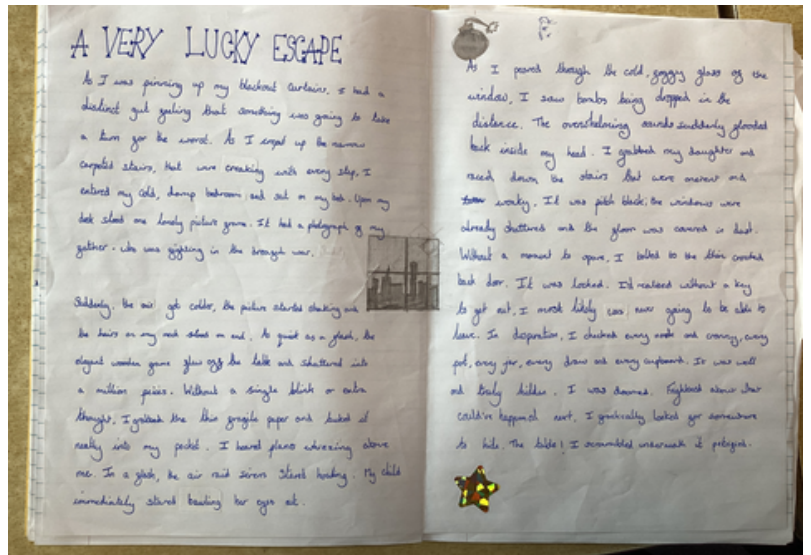 A VERY LUCKY ESCAPE
As I was pinning up my blackout curtains, I had a
distinct gut feeling that something was going to take
a turn for the worst. As I crept up the narrow
carpeted stairs, that were creaking with every step, I
entered my cold, damp bedroom and sat on my bed. Upon my
desk stood one lonely picture frame. It had a photograph of my
father - who was fighting in the war.
Suddenly, the air got colder, the picture started shaking and
the hairs on my neck stood on end. As quick as a flash, the
elegant wooden frame flew off the table and shattered into
a million pieces. Without a single blink or extra
thought, I grabbed the thin fragile paper and tucked it
neatly into my pocket. I heard planes above
me. In a flash, the air raid sirens started howling. My child
immediately started bawling her eyes out.
As I peered through the cold, foggy glass of the
window, I saw bombs being dropped in the
distance. The overwhelming sounds suddenly flooded
back inside my head. I grabbed my daughter and
raced down the stairs that were ancient and
wonky. It was pitch black; the windows were
already shuttered and the floor was covered in dust.
Without a moment to spare, I bolted to the thin crooked
back door. It was locked. I'd realised without a key
to get out, I most likely was never going to be able to
leave. In desperation, I checked every nook and cranny, every
pot, every jar, every draw and every cupboard. It was well
and truly hidden. I was doomed. Frightened about what
could've happened next, I frantically looked for somewhere
to hide. The table! I scrambled underneath it